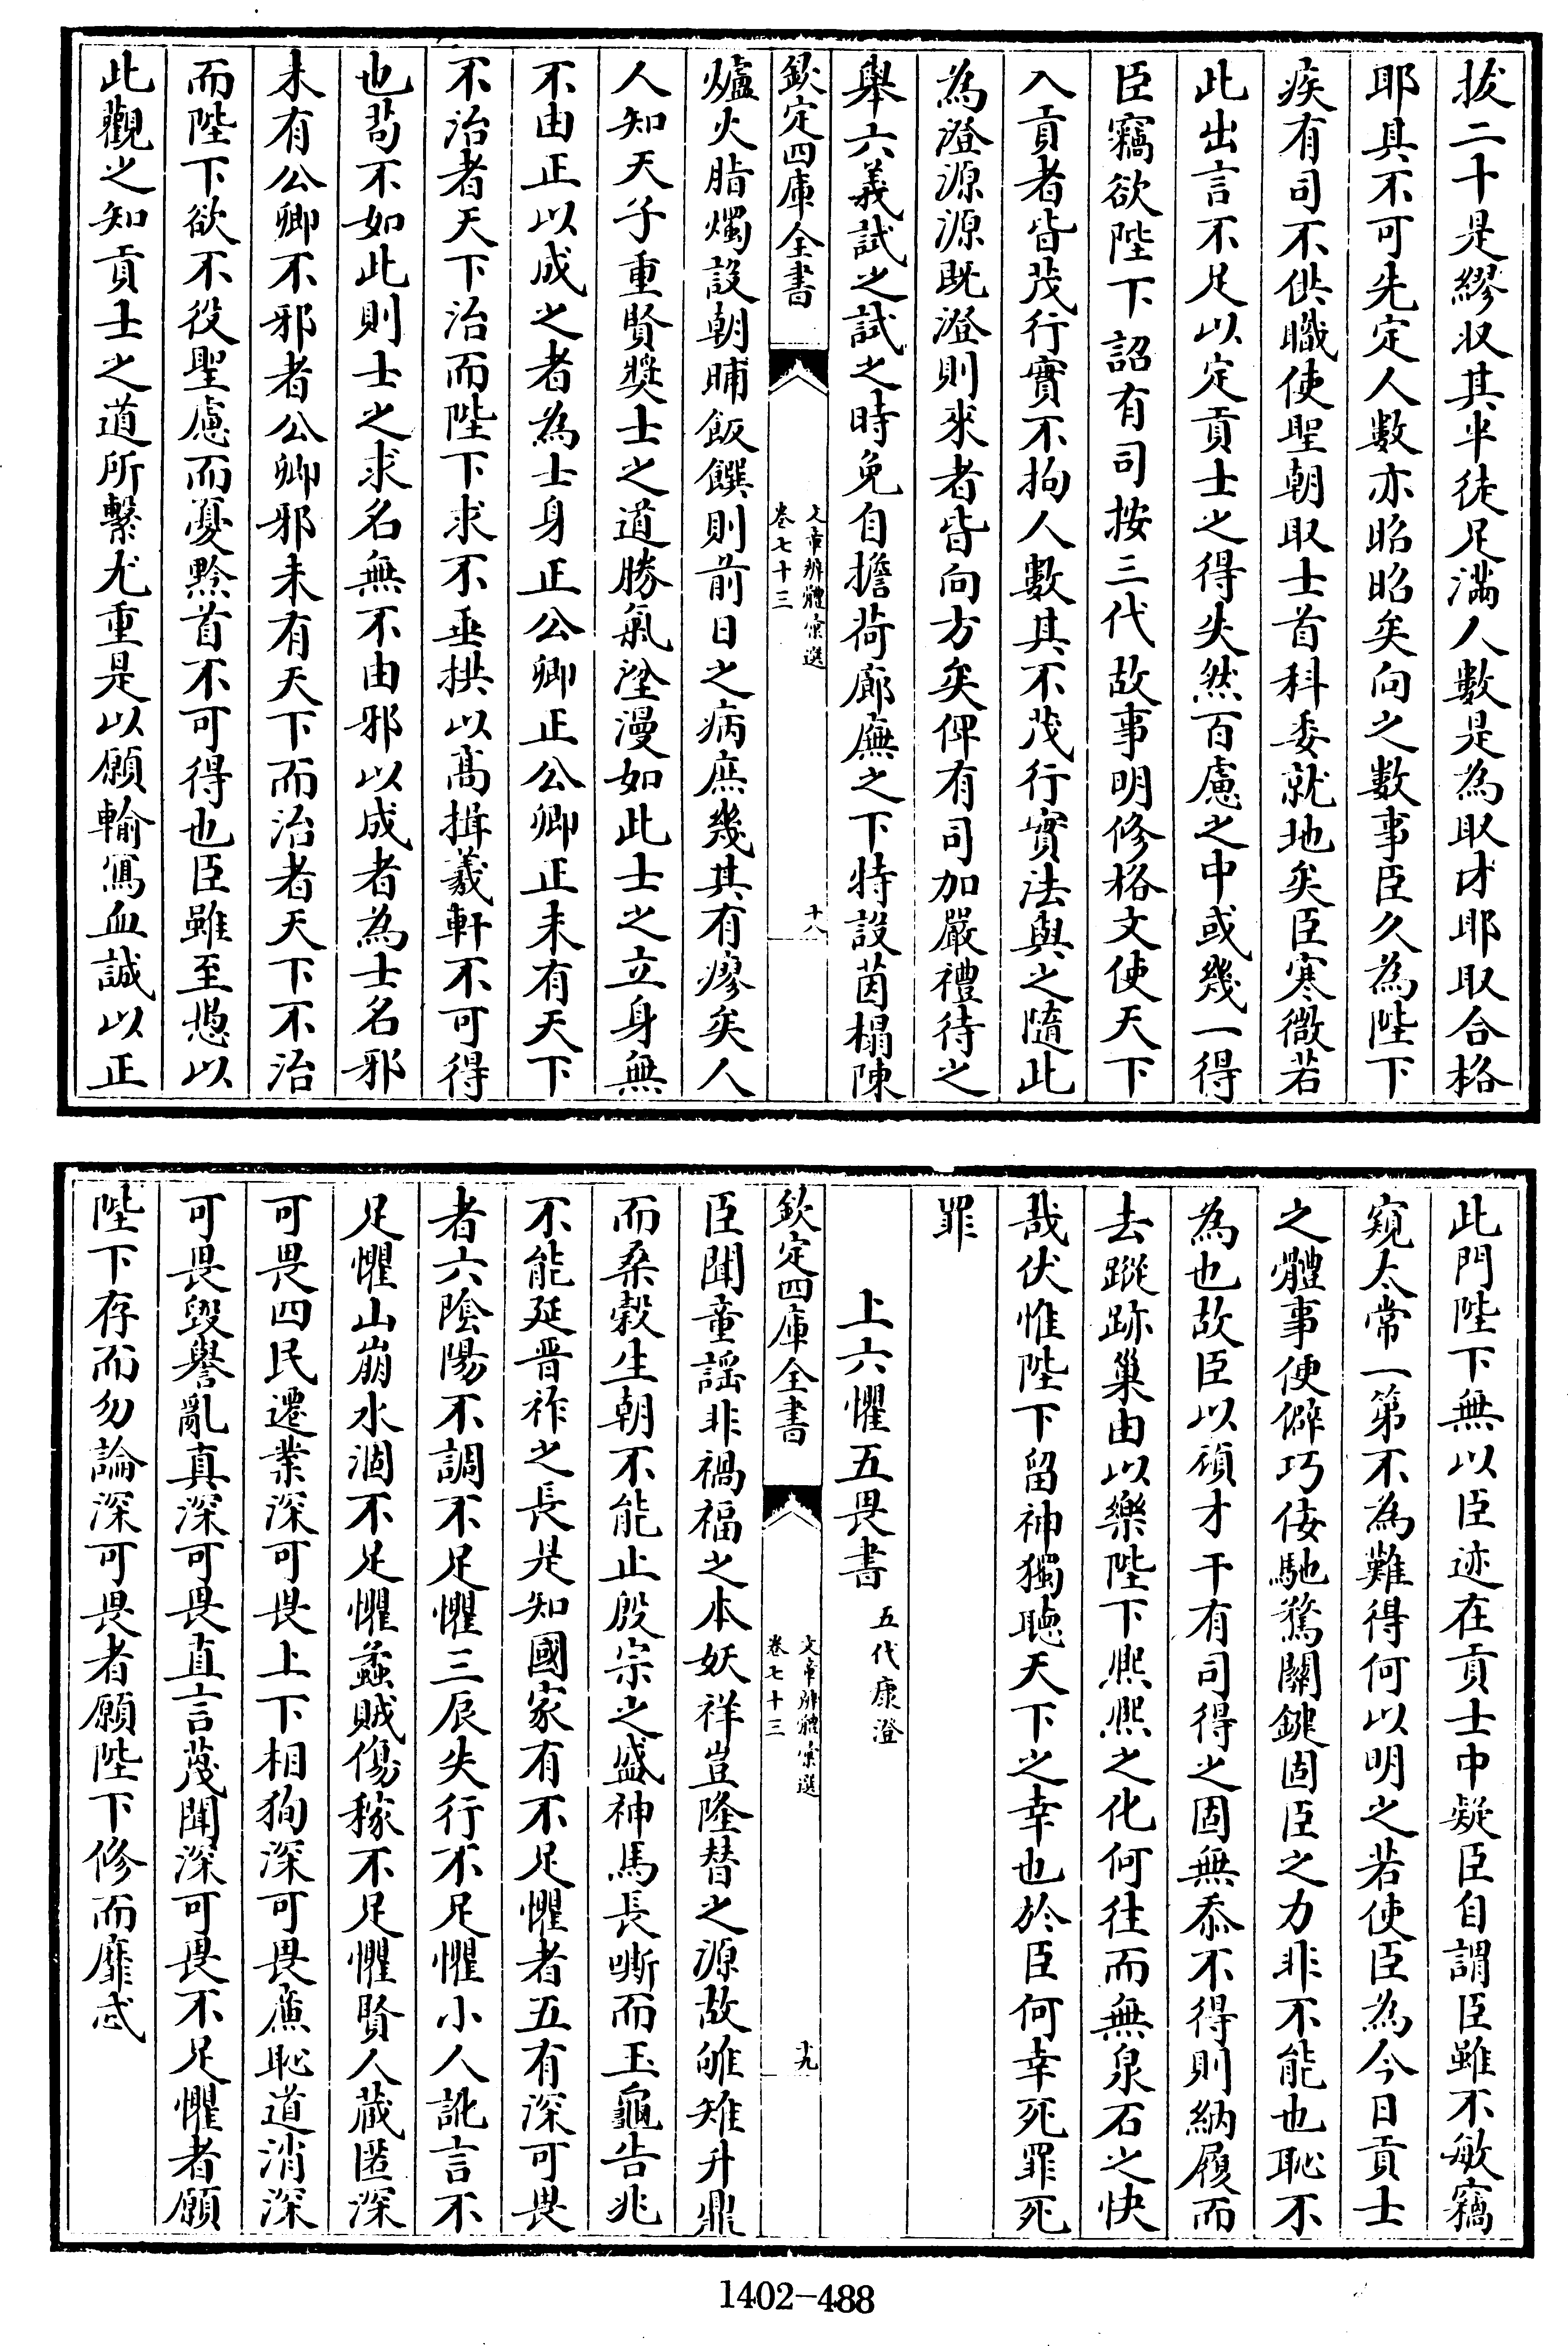 拔二十是繆収其半徒足滿人數是為取才耶取合格
耶其不可先定人數亦昭昭矣向之數事臣久為陛下
疾有司不供職使聖朝取士首科委就地矣臣寒微若
此出言不足以定貢士之得失然百慮之中或幾一得
臣竊欲陛下詔有司按三代故事明修格文使天下
入貢者皆茂行實不拘人數其不茂行實法與之隨此
為澄源源既澄則來者皆向方矣俾有司加嚴禮待之
舉六義試之試之時免自擔荷廊廡之下特設茵榻陳
欽定四庫全書
文章辨體彙選
卷七十三
十八
爐火脂燭設朝晡飯饌則前日之病庶幾其有瘳矣人
人知天子重賢奬士之道勝氣塗漫如此士之立身無
不由正以成之者為士身正公卿正公卿正未有天下
不治者天下治而陛下求不垂拱以髙揖羲軒不可得
也茍不如此則士之求名無不由邪以成者為士名邪
未有公卿不邪者公卿邪未有天下而治者天下不治
而陛下欲不役聖慮而憂黔首不可得也臣雖至愚以
此觀之知貢士之道所繫尤重是以願輸寫血誠以正
此門陛下無以臣迹在貢士中疑臣自謂臣雖不敏竊
窺太常一第不為難得何以明之若使臣為今日貢士
之體事便僻巧佞馳騖關鍵固臣之力非不能也恥不
為也故臣以頑才干有司得之固無忝不得則納履而
去蹤跡巢由以樂陛下熙熙之化何往而無泉石之快
哉伏惟陛下留神獨聴天下之幸也於臣何幸死罪死
罪
上六懼五畏書 五代康澄
欽定四庫全書
文章辨體彙選
卷七十三
十九
臣聞童謡非禍福之本妖祥豈隆替之源故雊雉升鼎
而桑穀生朝不能止殷宗之盛神馬長嘶而玉龜告兆
不能延晋祚之長是知國家有不足懼者五有深可畏
者六陰陽不調不足懼三辰失行不足懼小人訛言不
足懼山崩水涸不足懼蟊賊傷稼不足懼賢人蔵匿深
可畏四民遷業深可畏上下相狥深可畏廉恥道消深
可畏毀譽亂真深可畏直言蔑聞深可畏不足懼者願
陛下存而勿論深可畏者願陛下修而靡忒
1402-488